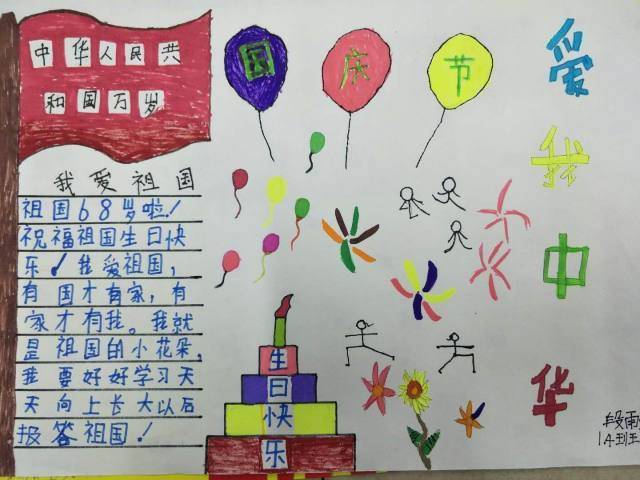 中华人民共
和国万岁
国庆节
爱我中华
我爱祖国
祖国68岁啦!
祝福祖国生日快
乐!我爱祖国,
有国才有家,有
家才有我。我就
是祖国的小花朵,
我要好好学习天
天向上长大以后
报答祖国!
生
日
快
乐
段雨
14班